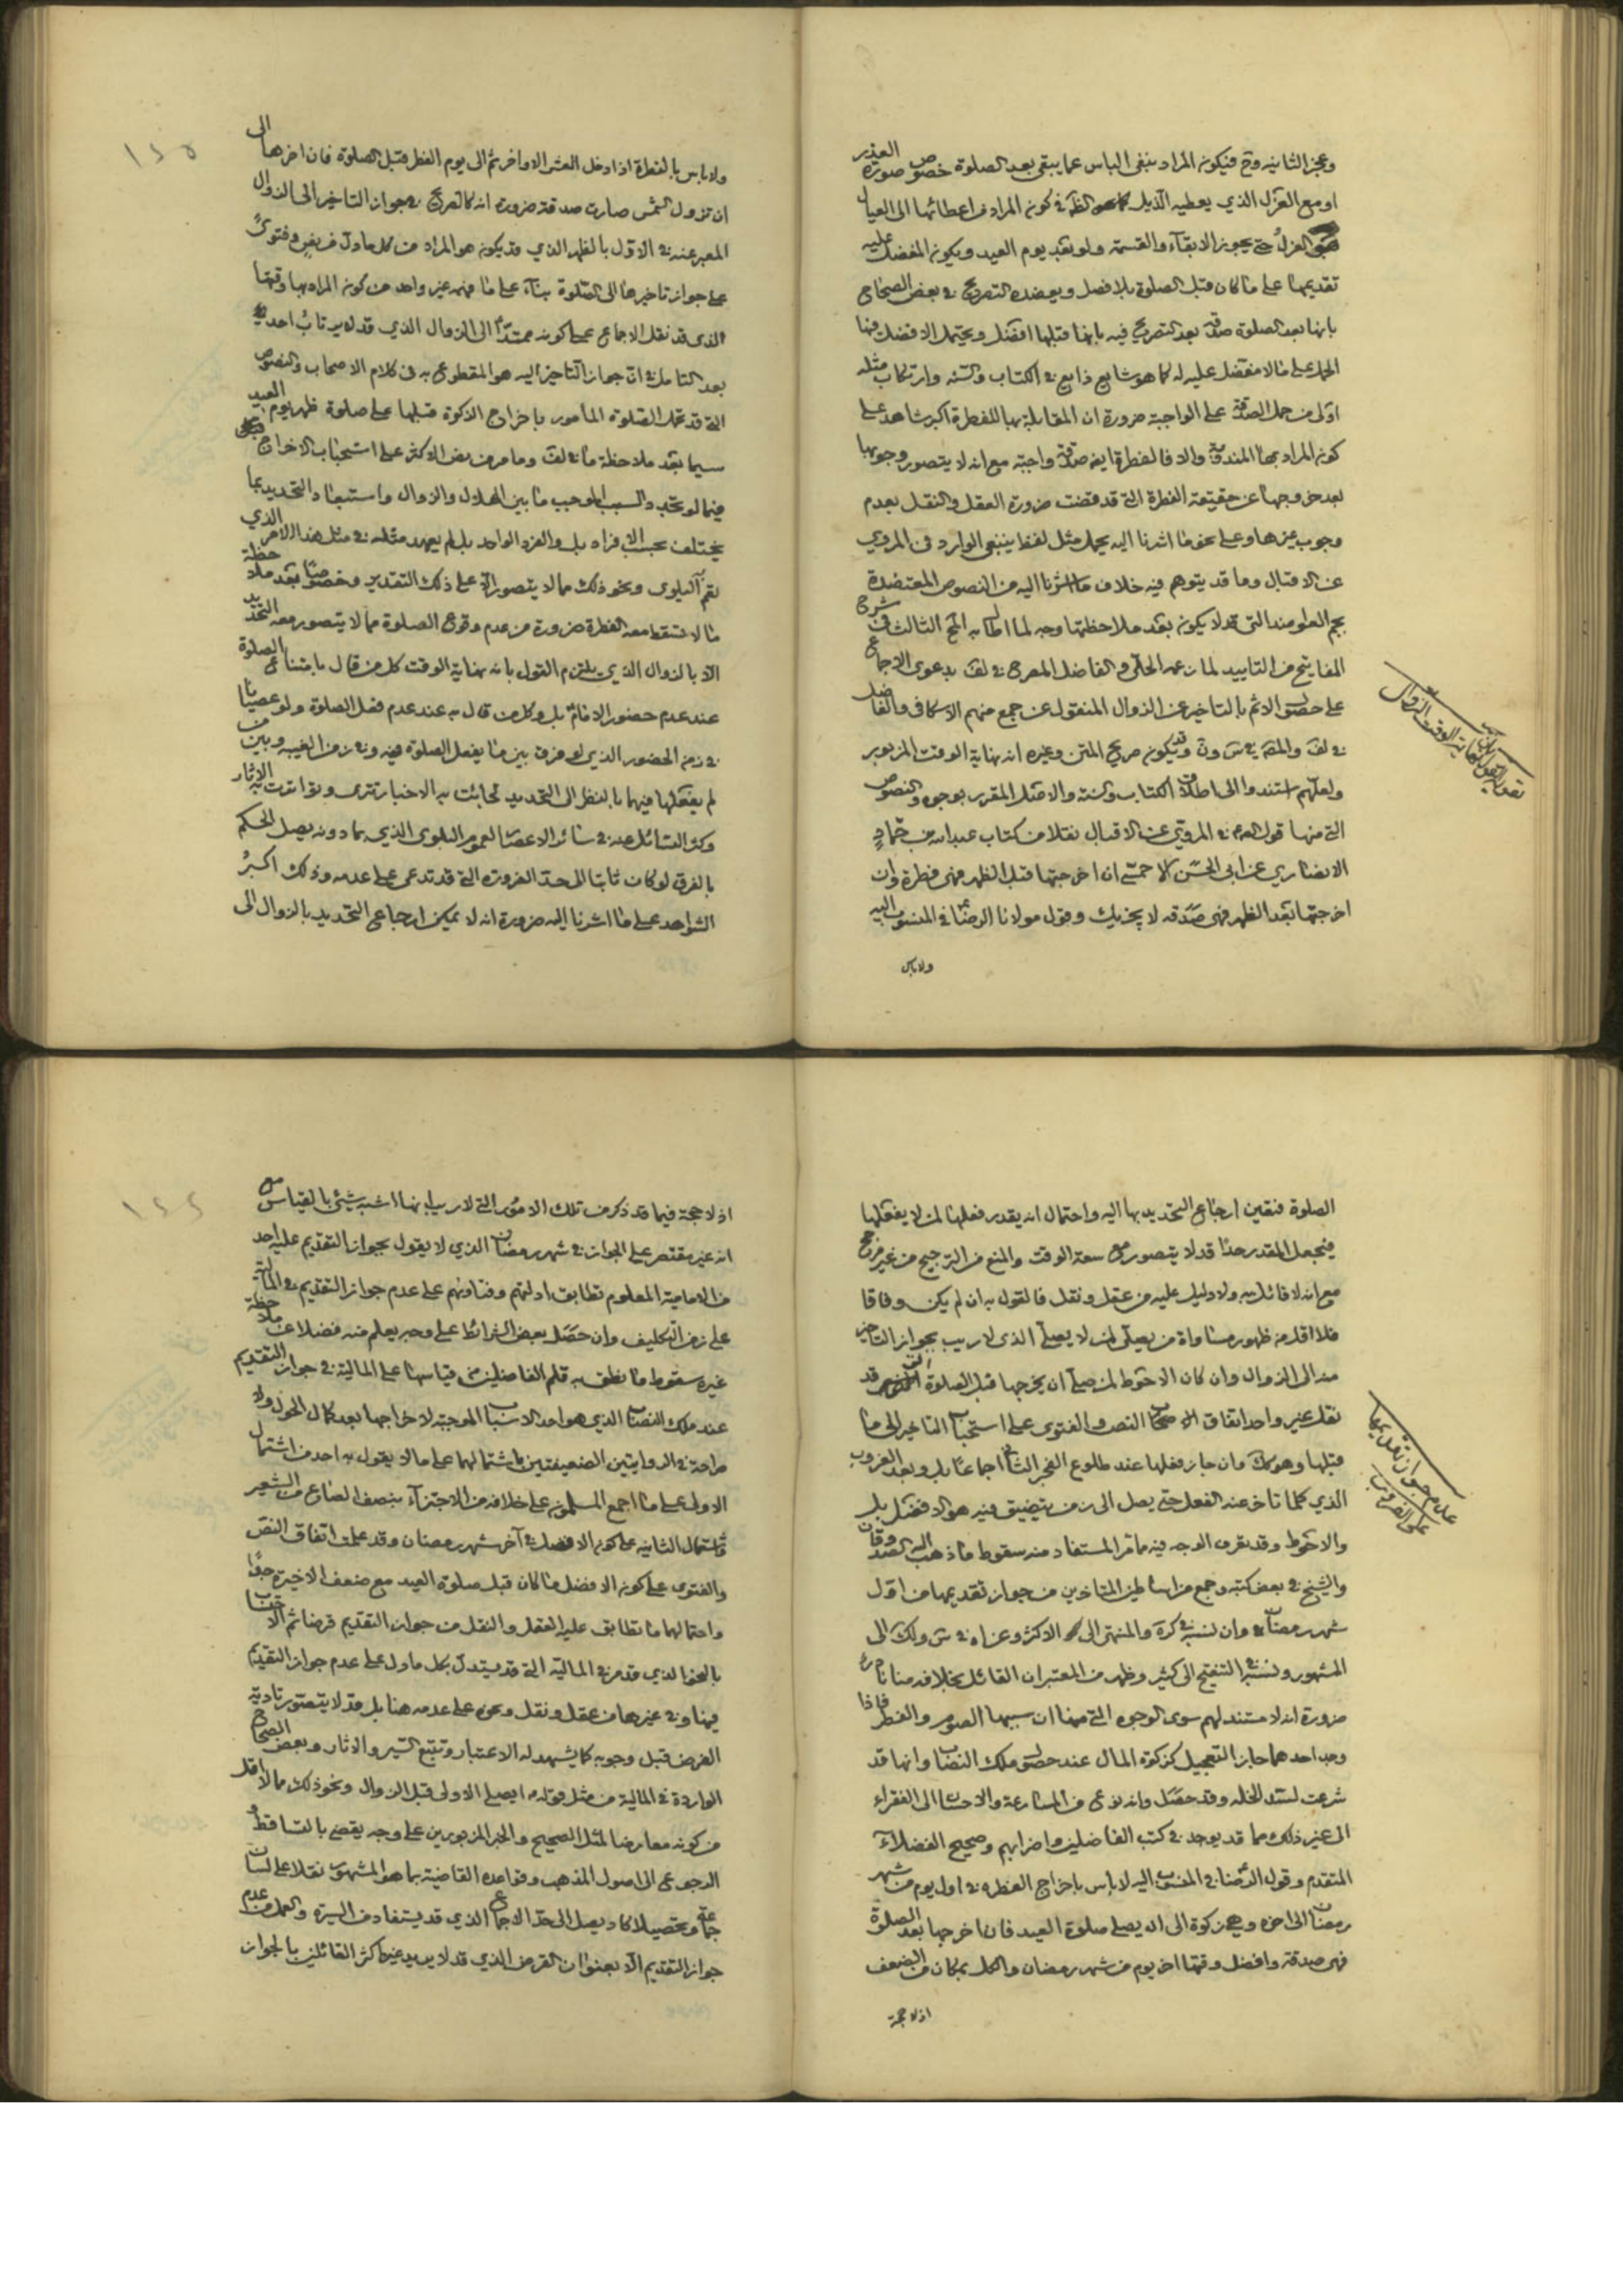 وعجز الثانيه وح فيكون المراد بنفى الباس عما يبقى بعد الصلوة خصوص صورة العذر
او مع العزل الذي يعطيه الذيل كون المراد من اعطائها الى العيال
العزل حتى يجوز الابقاء والقسمة ولو بعد يوم العيد ويكون المفضل عليه
تقديمها على ما كان قبل الصلوة بلا فصل ويعضده التصريح في بعض الصحاح
بانها بعد الصلوة صدقة بعد التصريح فيه بانها قبلها افضل ويحتمل الافضل فيها
الحمل على ما لا مفضل عليه له كما هو شايع ذايع في الكتاب والسنه وارتكاب مثله
اولى من حمل الصدقة على الواجبة ضرورة ان المقابلة بها للفطرة اكبر شاهد على
كون المراد بها المندوبة والا فالفطرة ايضا صدقة واجبة مع انه لا يتصور وجوبها
بعد خروجها عن حقيقة الفطرة التي قد قضت ضرورة العقل والنقل بعدم
وجوب غيرها وعلى نحو ما اشرنا اليه يحمل مثل لفظ ينبغى الوارد فى المروي
عن الاقبال وما قد يتوهم فيه خلاف ما اشرنا اليه من النصوص المعتضدة
لما اطال به المح الثالث في شرح
المفاتيح من التاييد لما زعمه الحلي والفاضل المصرح في لف بدعوى الاجماع
على حصول الاثم بالتاخير عن الزوال المنقول عن جمع منهم الاسكافى والفاضل
في لف والمص في س ون وقد يكون صريح المتن وغيره انه نهاية الوقت المزبور
ولعلهم استندوا الى اطلاق الكتاب والسنة والاصل المقرر بوجوه والنصوص
التي منها قول الصم في المروي عن الاقبال نقلا من كتاب عبد الله بن حماد
الانصاري عن ابى الحسن الاحمسي ان اخرجتها قبل الظهر فهى فطرة وان
اخرجتها بعد الظهر فهى صدقه لا يجزيك وقول مولانا الرضا في المنسوب اليه
ولاباس
نهاية الوقت الزوال
١٢٥
ولاباس بالفطرة اذا دخل العشر الاواخر ثم الى يوم الفطر قبل الصلوة فان اخرها الى
ان تزول الشمس صارت صدقة ضرورة انه كالصريح في جواز التاخير الى الزوال
المعبر عنه في الاول بالظهر الذي قد يكون هو المراد من كل ما دل من نص وفتوى
على جواز تاخيرها الى الصلوة بناء على ما فهمه غير واحد من كون المراد بها وقتها
الذى قد نقل الاجماع على كونه ممتدا الى الزوال الذي قد لا يرتاب احد
بعد التامل في ان جواز التاخير اليه هو المقطوع به فى كلام الاصحاب والنصوص
التي قد تحمل الصلوة المأمور باخراج الزكوة قبلها على صلوة ظهر يوم العيد
سيما بعد ملاحظة ما في لف وما مر من نص الاكثر على استحباب الاخراج
فيما لو تجدد السبب الموجب ما بين الهلال والزوال واستبعاد التحديد بما
يختلف بحسب الافراد بل والفرد الواحد بل لم يعهد مثله في مثل هذا الامر الذي
تعم البلوى ونحو ذلك مما لا يتصور الا على ذلك التقدير وخصوصا بعد ملاحظة
ما لا تسقط معه الفطرة ضرورة من عدم وقوع الصلوة مما لا يتصور معه التحديد
الا بالزوال الذي يلتزم القول بانه نهاية الوقت كل من قال بامتناع الصلوة
عند عدم حضور الامام بل وكل من قال به عند عدم فعل الصلوة ولو عصيانا
في زمن الحضور الذي لم يفرق بين ما يفعل الصلوة فيه وفي زمن الغيبه وبين من
لم يفعلها فيهما بالنظر الى التحديد لجائت به الاخبار تترى وتواترت به الاثار
وكثر التسائل عنه في سائر الاعصار لعموم البلوى الذي بما دونه يصل الحكم
بالفرق لو كان ثابتا الى حد الضرورة التي قد تدعى على عدمه وذلك اكبر
الشواهد على ما اشرنا اليه ضرورة انه لا يمكن ارجاع التحديد بالزوال الى
الصلوة فتعين ارجاع التحديد بها اليه واحتمال انه يقدر فعلها لمن لا يفعلها
فيجعل المقدر حدا قد لا يتصور مع سعة الوقت والمنع من الترجيح من غير مرجح
مع انه لا قائل به ولا دليل عليه من عقل ونقل فالقول به ان لم يكن وفاقا
فلا اقل من ظهور مساواة من يصلى لمن لا يصلى الذى لا ريب بجواز التاخير
منه الى الزوال وان كان الاحوط لمن صلى ان يخرجها قبل الصلوة التي قد
نقل غير واحد اتفاق الاصحاب النص والفتوى على استحباب التاخير الى ما
قبلها وهو كك وان جاز فعلها عند طلوع الفجر الثانى اجماعا بل وبعد الغروب
الذي كلما تاخر عنه الفعل حتى يصل الى زمن يتضيق فيه هو الافضل بل
والاحوط وقد يعرف الوجه فيه مما مر المستفاد منه سقوط ما ذهب اليه الصدوقان
والشيخ في بعض كتبه وجمع من اساطين المتاخرين من جواز تقديمها من اول
شهر رمضان وان نسبه في كرة والمنتهى الى الاكثر وعزاه في س ولك الى
المشهور ونسبه في التنقيح الى كثير وظهر من المعتبر ان القائل بخلافه منا نادر
ضرورة انه لا مستند لهم سوى الوجوه التي منها ان سببها الصوم والفطر فاذا
وجد احدهما جاز التعجيل كزكوة المال عند حصول ملك النصاب وانها قد
شرعت لسد الخله وقد حصل وانه نوع من المسارعة والاحسان الى الفقراء
الى غير ذلك مما قد يوجد في كتب الفاضلين واضرابهم وصحيح الفضلاء
المتقدم وقول الرضا في المنسوب اليه لاباس باخراج الفطره في اول يوم من شهر
رمضان الى اخره وهي زكوة الى ان يصلى صلوة العيد فان اخرجها بعد الصلوة
فهى صدقة وافضل وقتها اخر يوم من شهر رمضان والكل بمكان من الضعف
اذ لا حجة
عدم جواز تقديمها
على
١٢٦
اذ لا حجة فيما قد ذكر من تلك الامور التي لا ريب انها اشبه شيئ بالقياس مع
انه غير مقتصر على الجواز في شهر رمضان الذي لا يقول بجواز التقديم عليه احد
من الامامية المعلوم تطابق ادلتهم وفتاويهم على عدم جواز التقديم في المالية
على زمن التكليف وان حصل بعض الشرائط على وجه يعلم منه فضلا عن ملاحظة
غيره سقوط ما نطق به قلم الفاضلين من قياسها على المالية في جواز التقديم
عند ملك النصاب الذي هو احد الاسباب الموجبة لاخراجها بعد كمال الحول ولا
صراحة في الروايتين الضعيفتين باشتمالهما على ما لا يقول به احد من اشتمال
الاولى على ما اجمع المسلمون على خلافه من الاجتزاء بنصف الصاع من الشعير
واشتمال الثانية على كون الافضل في آخر شهر رمضان وقد علمت اتفاق النص
والفتوى على كون الافضل ما كان قبل صلوة العيد مع ضعف الاخيرة جدا
واحتمالهما ما تطابق عليه العقل والنقل من جواز التقديم قرضا ثم الاحتساب
بالنحو الذي قد مر في المالية التي قد يستدل بكل ما دل على عدم جواز التقديم
فيها وفي غيرها من عقل ونقل ونحوه على عدمه هنا بل قد لا يتصور تادية
الفرض قبل وجوبه كما يشهد له الاعتبار وتتبع السير والاثار وبعض الصحاح
الواردة في المالية من مثل قوله ايصلى الاولى قبل الزوال ونحو ذلك مما لا اقل
من كونه معارضا لمثل الصحيح والخبر المزبورين على وجه يقضى بالتساقط و
الرجوع الى اصول المذهب وقواعده القاضية بما هو المشهور نقلا على لسان
جماعة وتحصيلا كاد يصل الى حد الاجماع الذي قد يستفاد من السيرة والعمل من عدم
جواز التقديم الا بعنوان القرض الذي قد لا يريد غيره اكثر القائلين بالجواز